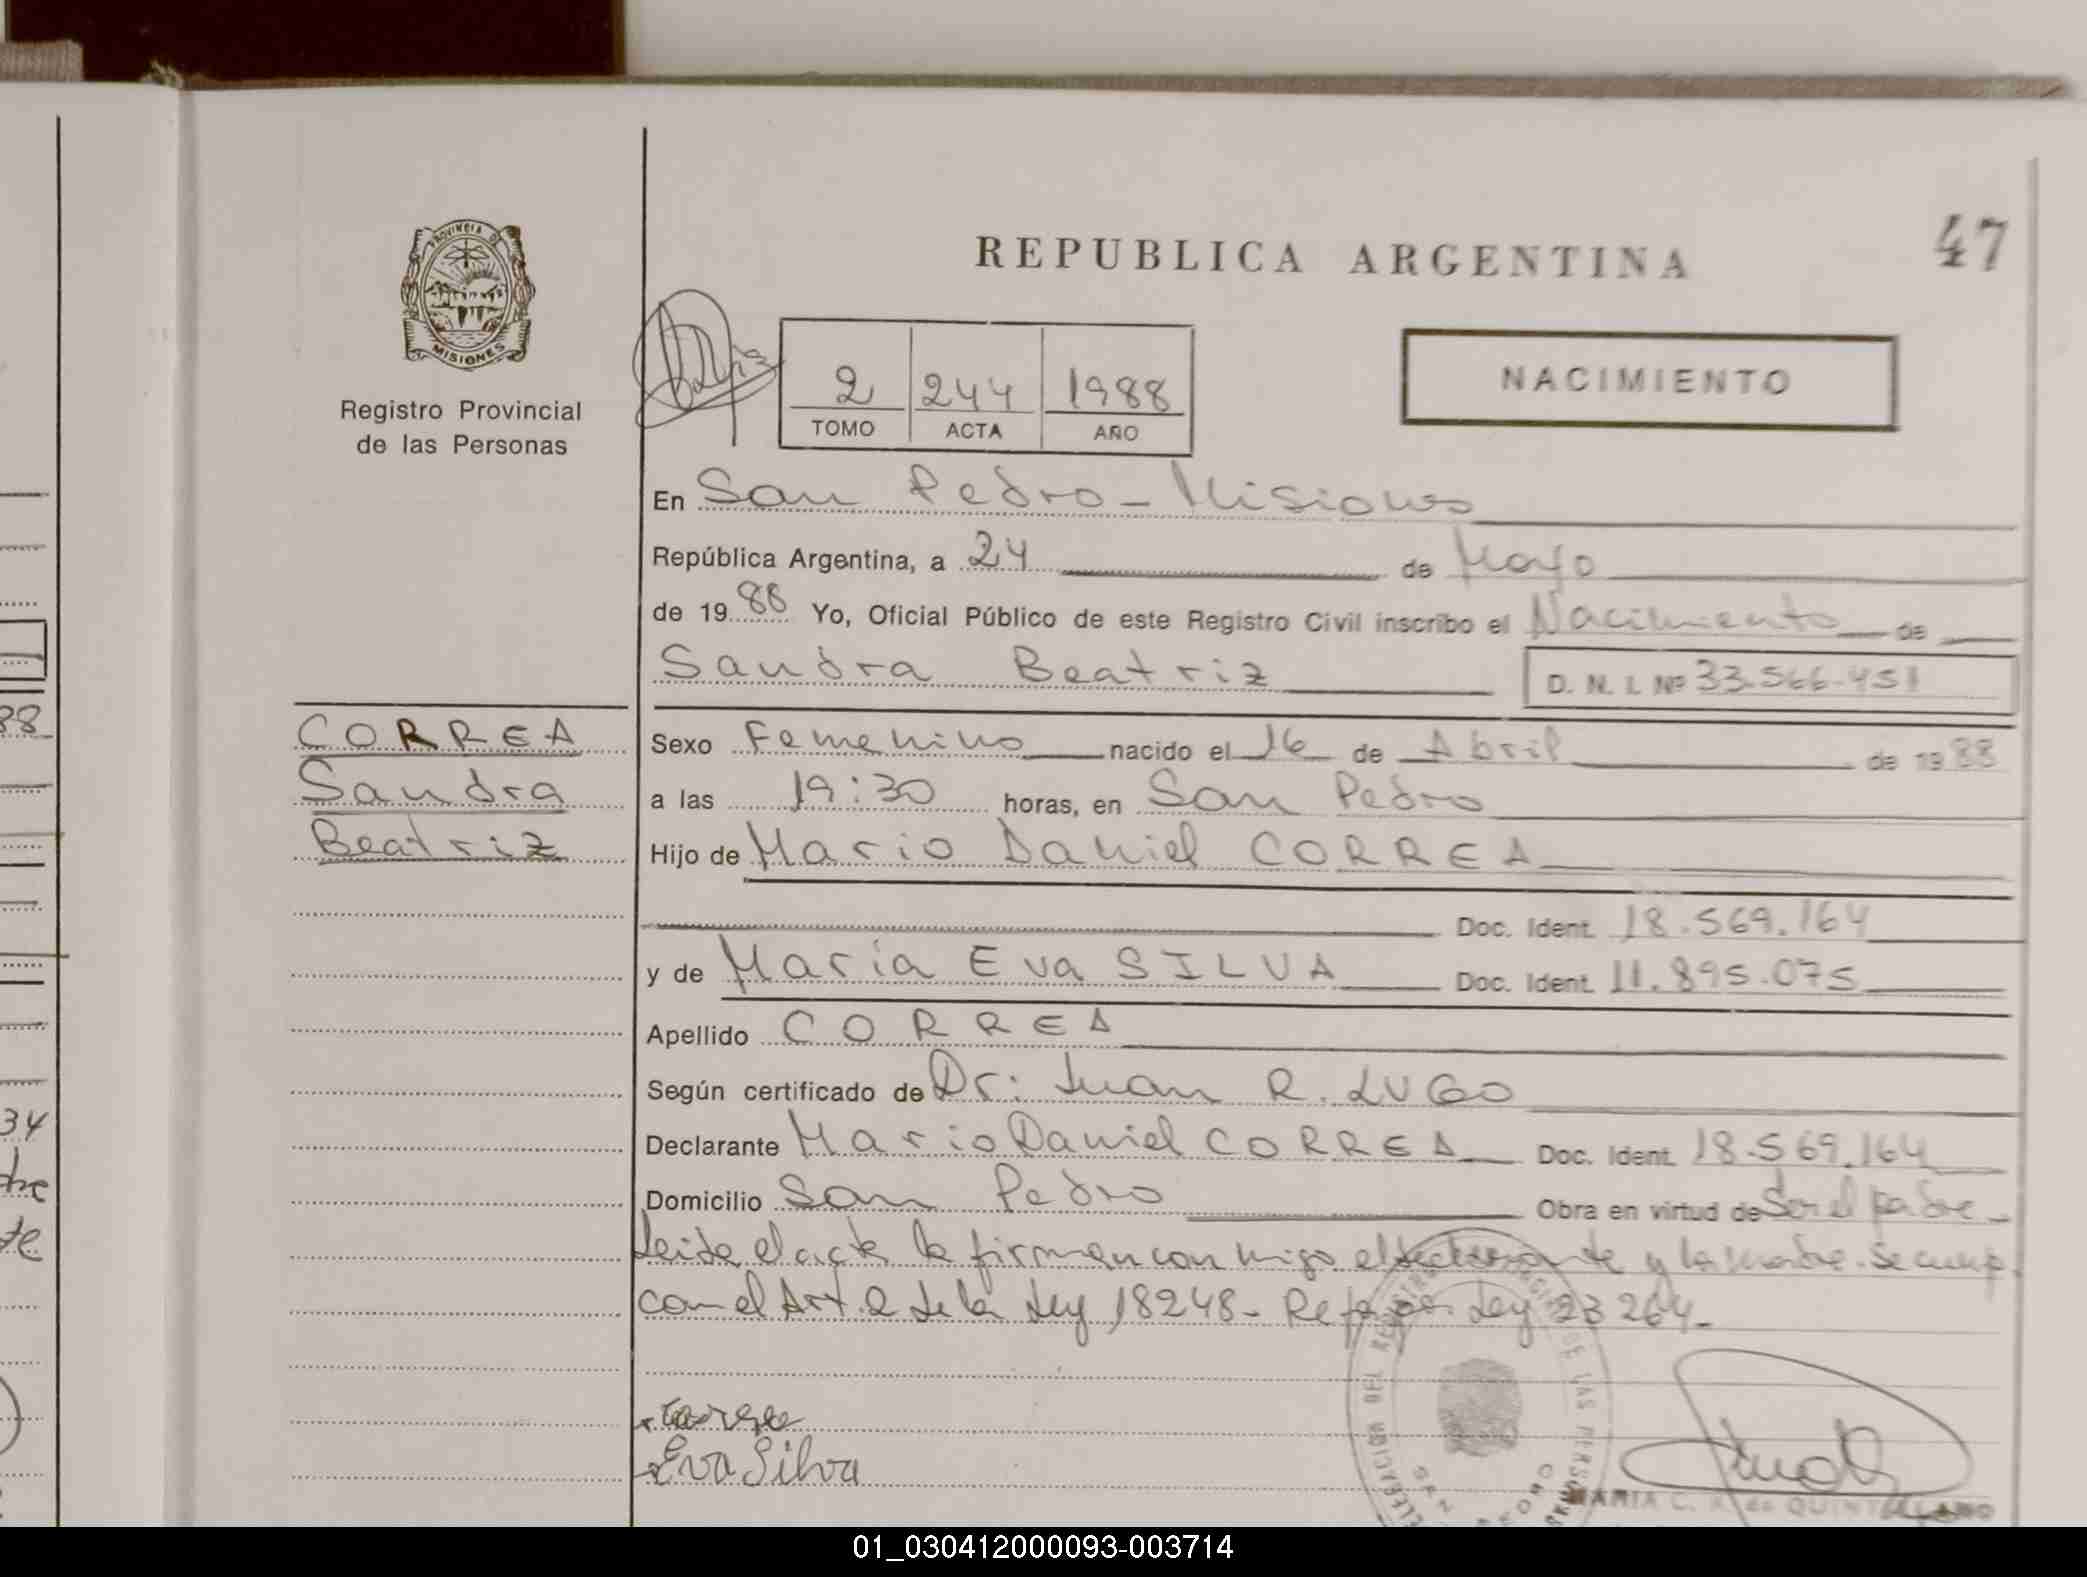 PROVINCIA DE
MISIONES
Registro Provincial
de las Personas
REPUBLICA ARGENTINA
47
2 244 1988
TOMO ACTA AÑO
NACIMIENTO
En San Pedro - Misiones
República Argentina, a 24 de Mayo
de 1988 Yo, Oficial Público de este Registro Civil inscribo el Nacimiento de
Sandra Beatriz D. N. I. Nº 33.566.451
CORREA
Sandra
Beatriz
Sexo Femenino nacido el 16 de Abril de 1988
a las 19:30 horas, en San Pedro
Hijo de Mario Daniel CORREA
Doc. Ident. 18.569.164
y de María Eva SILVA Doc. Ident. 11.895.075
Apellido CORREA
Según certificado de Dr: Juan R. LUGO
Declarante Mario Daniel CORREA Doc. Ident. 18.569.164
Domicilio San Pedro Obra en virtud de Ser el padre -
Leida el acta la firman con migo el declarante y la madre. Se cump
con el Art. 2 de la Ley 18248 - Ref. por Ley 23264 -
Correa
Eva Silva
MARIA C. R. de QUINTELLANO
88
34
01_030412000093-003714